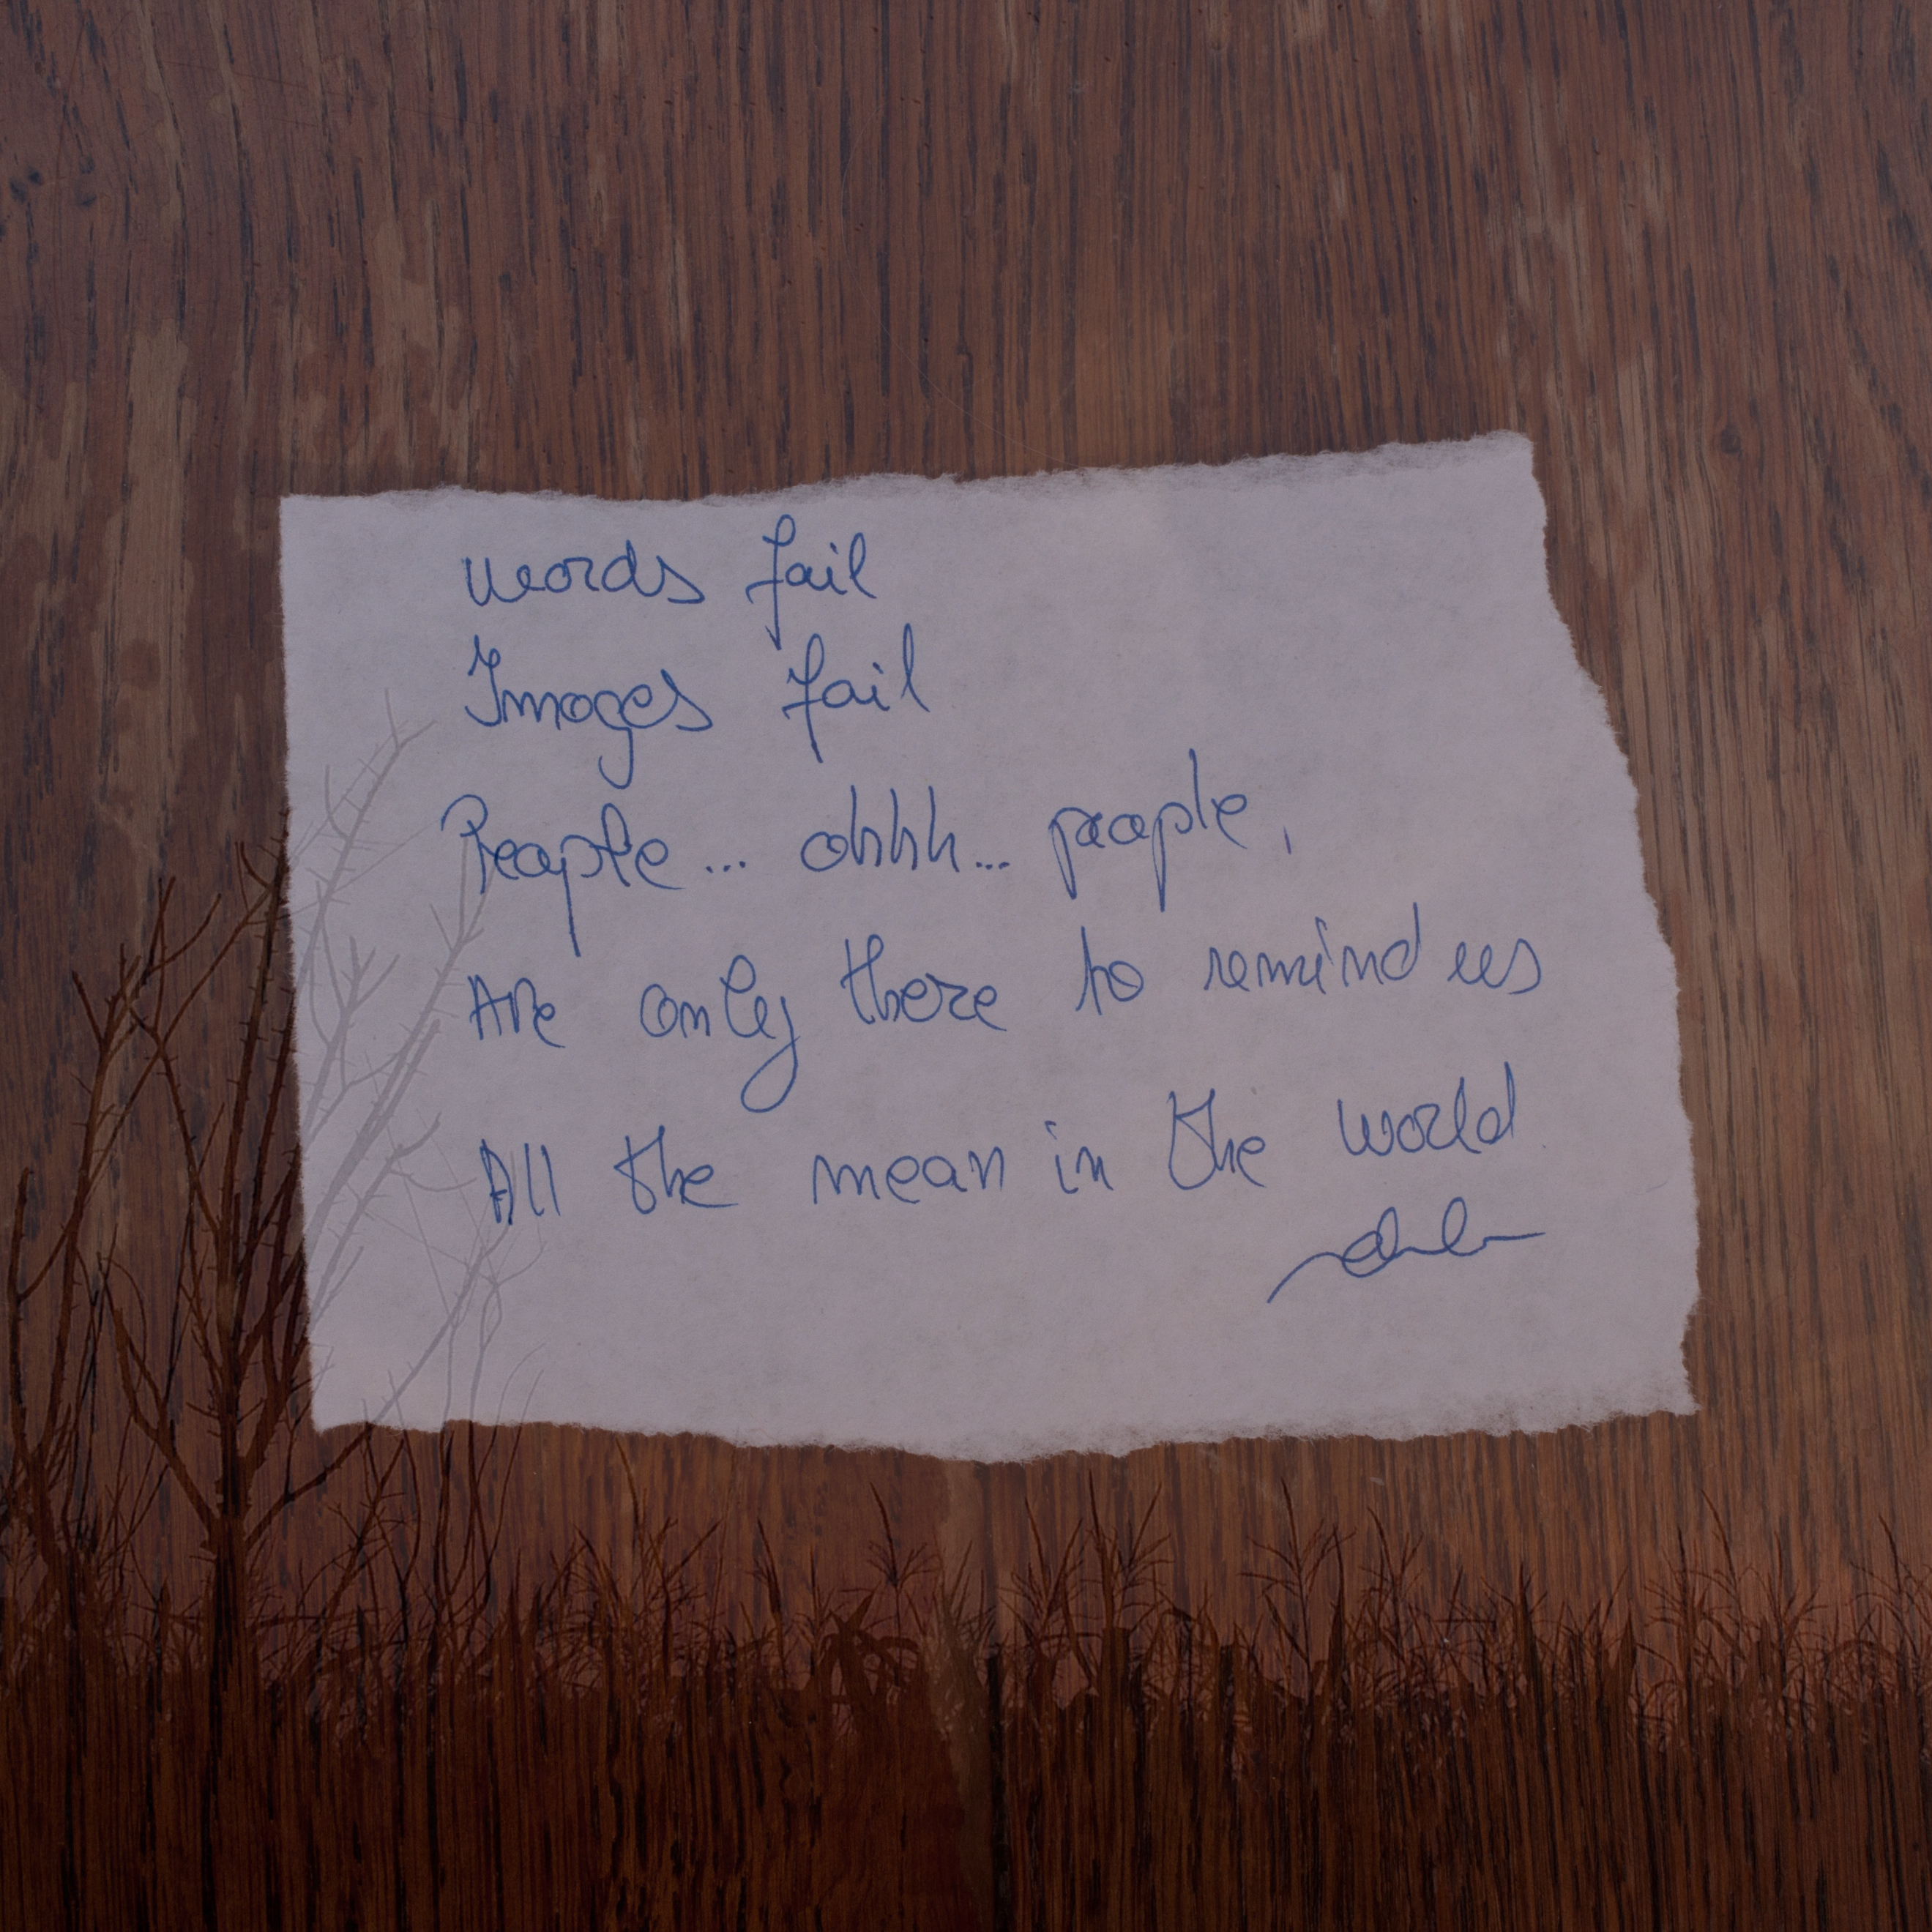 words fail
Images fail
People... ohhh... people,
Are only there to remind us
All the mean in the world